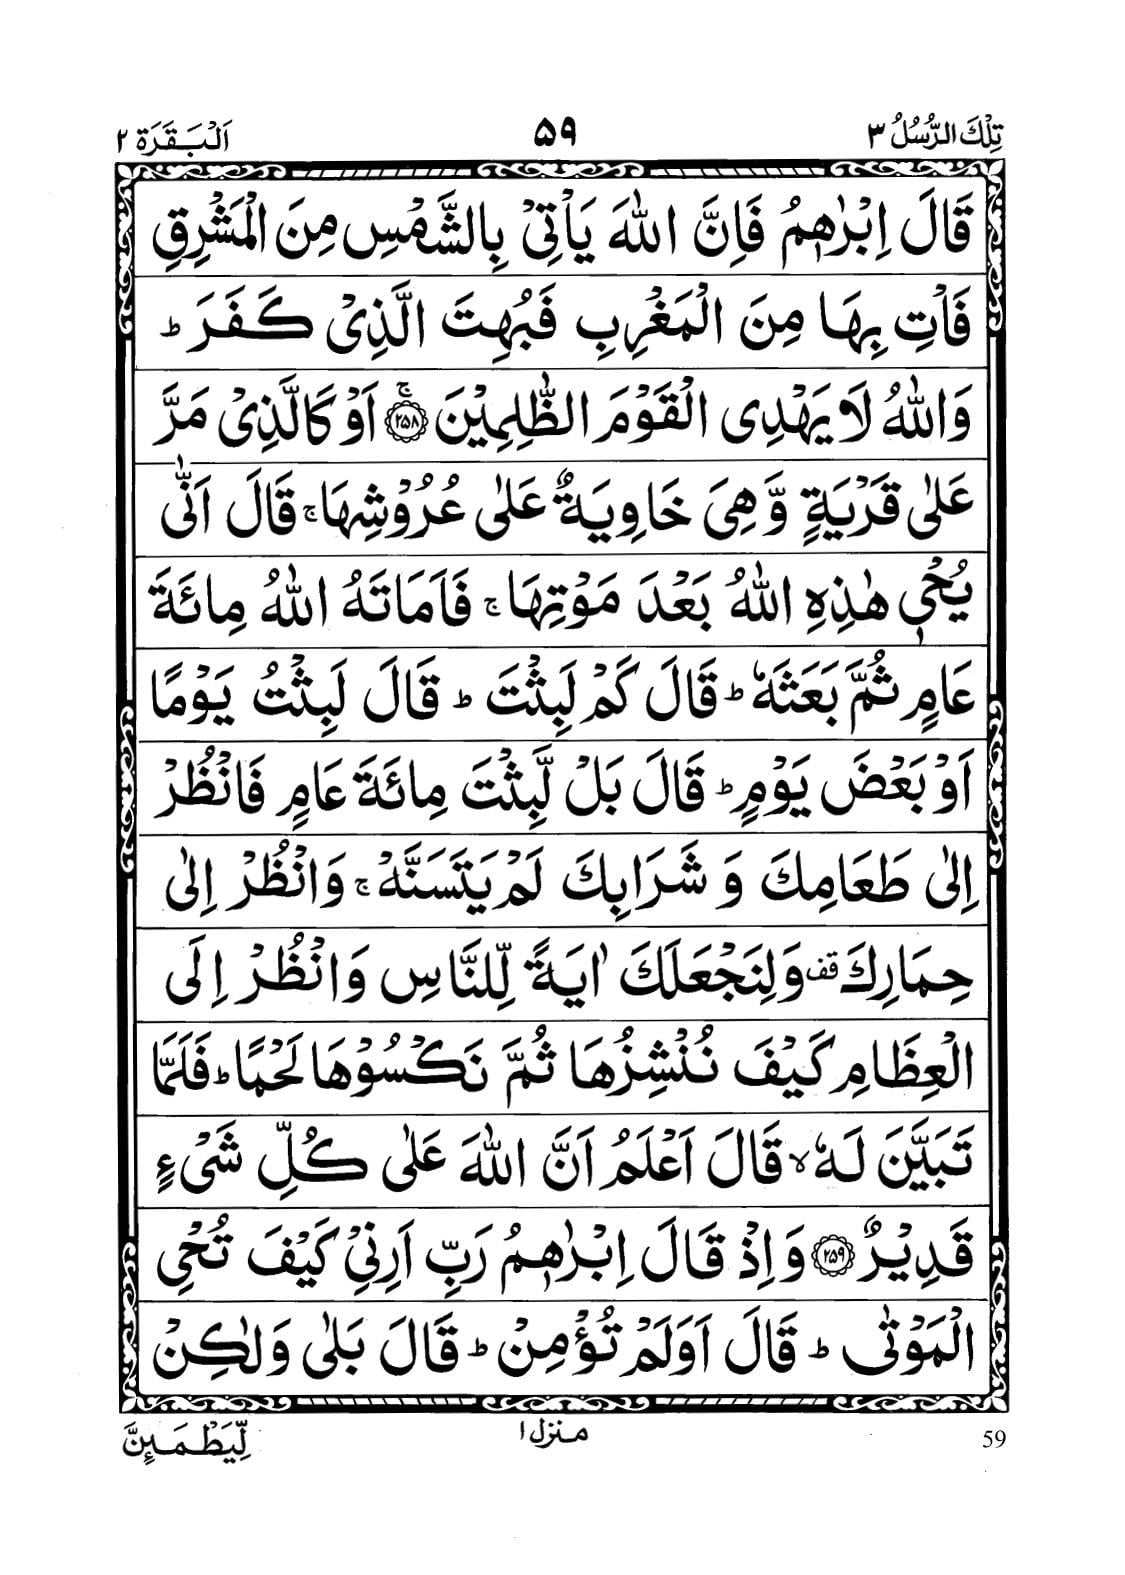 تِلْكَ الرُّسُلُ ٣ ۵۹ اَلْبَقَرَة ٢
قَالَ اِبْرٰهٖمُ فَاِنَّ اللّٰهَ يَاْتِيْ بِالشَّمْسِ مِنَ الْمَشْرِقِ
فَاْتِ بِهَا مِنَ الْمَغْرِبِ فَبُهِتَ الَّذِيْ كَفَرَ ؕ
وَاللّٰهُ لَا يَهْدِى الْقَوْمَ الظّٰلِمِيْنَ ۚ‏﴿۲۵۸﴾ اَوْ كَالَّذِيْ مَرَّ
عَلٰى قَرْيَةٍ وَّهِيَ خَاوِيَةٌ عَلٰى عُرُوْشِهَا ۚ قَالَ اَنّٰى
يُحْيٖ هٰذِهِ اللّٰهُ بَعْدَ مَوْتِهَا ۚ فَاَمَاتَهُ اللّٰهُ مِائَةَ
عَامٍ ثُمَّ بَعَثَهٗ ؕ قَالَ كَمْ لَبِثْتَ ؕ قَالَ لَبِثْتُ يَوْمًا
اَوْ بَعْضَ يَوْمٍ ؕ قَالَ بَلْ لَّبِثْتَ مِائَةَ عَامٍ فَانْظُرْ
اِلٰى طَعَامِكَ وَ شَرَابِكَ لَمْ يَتَسَنَّهْ ۚ وَانْظُرْ اِلٰى
حِمَارِكَ قف وَلِنَجْعَلَكَ اٰيَةً لِّلنَّاسِ وَانْظُرْ اِلَى
الْعِظَامِ كَيْفَ نُنْشِزُهَا ثُمَّ نَكْسُوْهَا لَحْمًا ؕ فَلَمَّا
تَبَيَّنَ لَهٗ ۙ قَالَ اَعْلَمُ اَنَّ اللّٰهَ عَلٰى كُلِّ شَيْءٍ
قَدِيْرٌ ﴿۲۵۹﴾ وَاِذْ قَالَ اِبْرٰهٖمُ رَبِّ اَرِنِيْ كَيْفَ تُحْيِ
الْمَوْتٰى ؕ قَالَ اَوَلَمْ تُؤْمِنْ ؕ قَالَ بَلٰى وَلٰكِنْ
59 منزل ۱ لِّيَطْمَئِنَّ